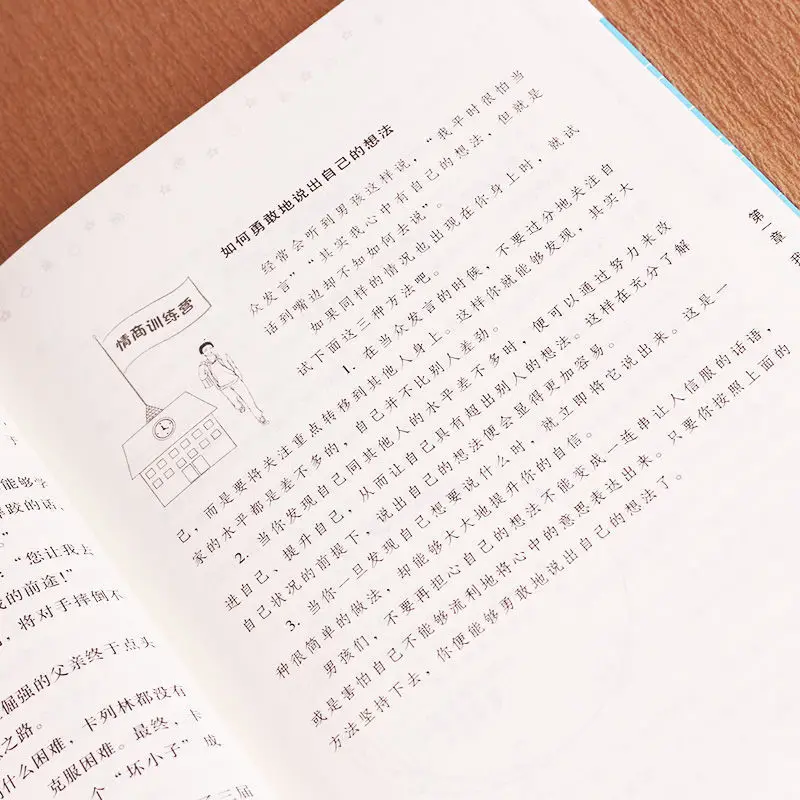 能够学
摔跤的话、
”
：“您让我去
我的前途！”
，将对手摔倒不
倔强的父亲终于点头
之路。
什么困难，卡列林都没有
克服困难。最终，卡
个“坏小子”成
三届
如何勇敢地说出自己的想法
情商训练营
经常会听到男孩这样说，“我平时很怕当
众发言”“其实我心中有自己的想法，但就是
话到嘴边却不知如何去说”。
如果同样的情况也出现在你身上时，就试
试下面这三种方法吧。
1. 在当众发言的时候，不要过分地关注自
己，而是要将关注重点转移到其他人身上。这样你就能够发现，其实大
家的水平都是差不多的，自己并不比别人差劲。
2. 当你发现自己同其他人的水平差不多时，便可以通过努力来改
进自己、提升自己，从而让自己具有超出别人的想法。这样在充分了解
自己状况的前提下，说出自己的想法便会显得更加容易。
3. 当你一旦发现自己想要说什么时，就立即将它说出来。这是一
种很简单的做法，却能够大大地提升你的自信。
男孩们，不要再担心自己的想法不能变成一连串让人信服的话语，
或是害怕自己不能够流利地将心中的意思表达出来。只要你按照上面的
方法坚持下去，你便能够勇敢地说出自己的想法了。
第一章